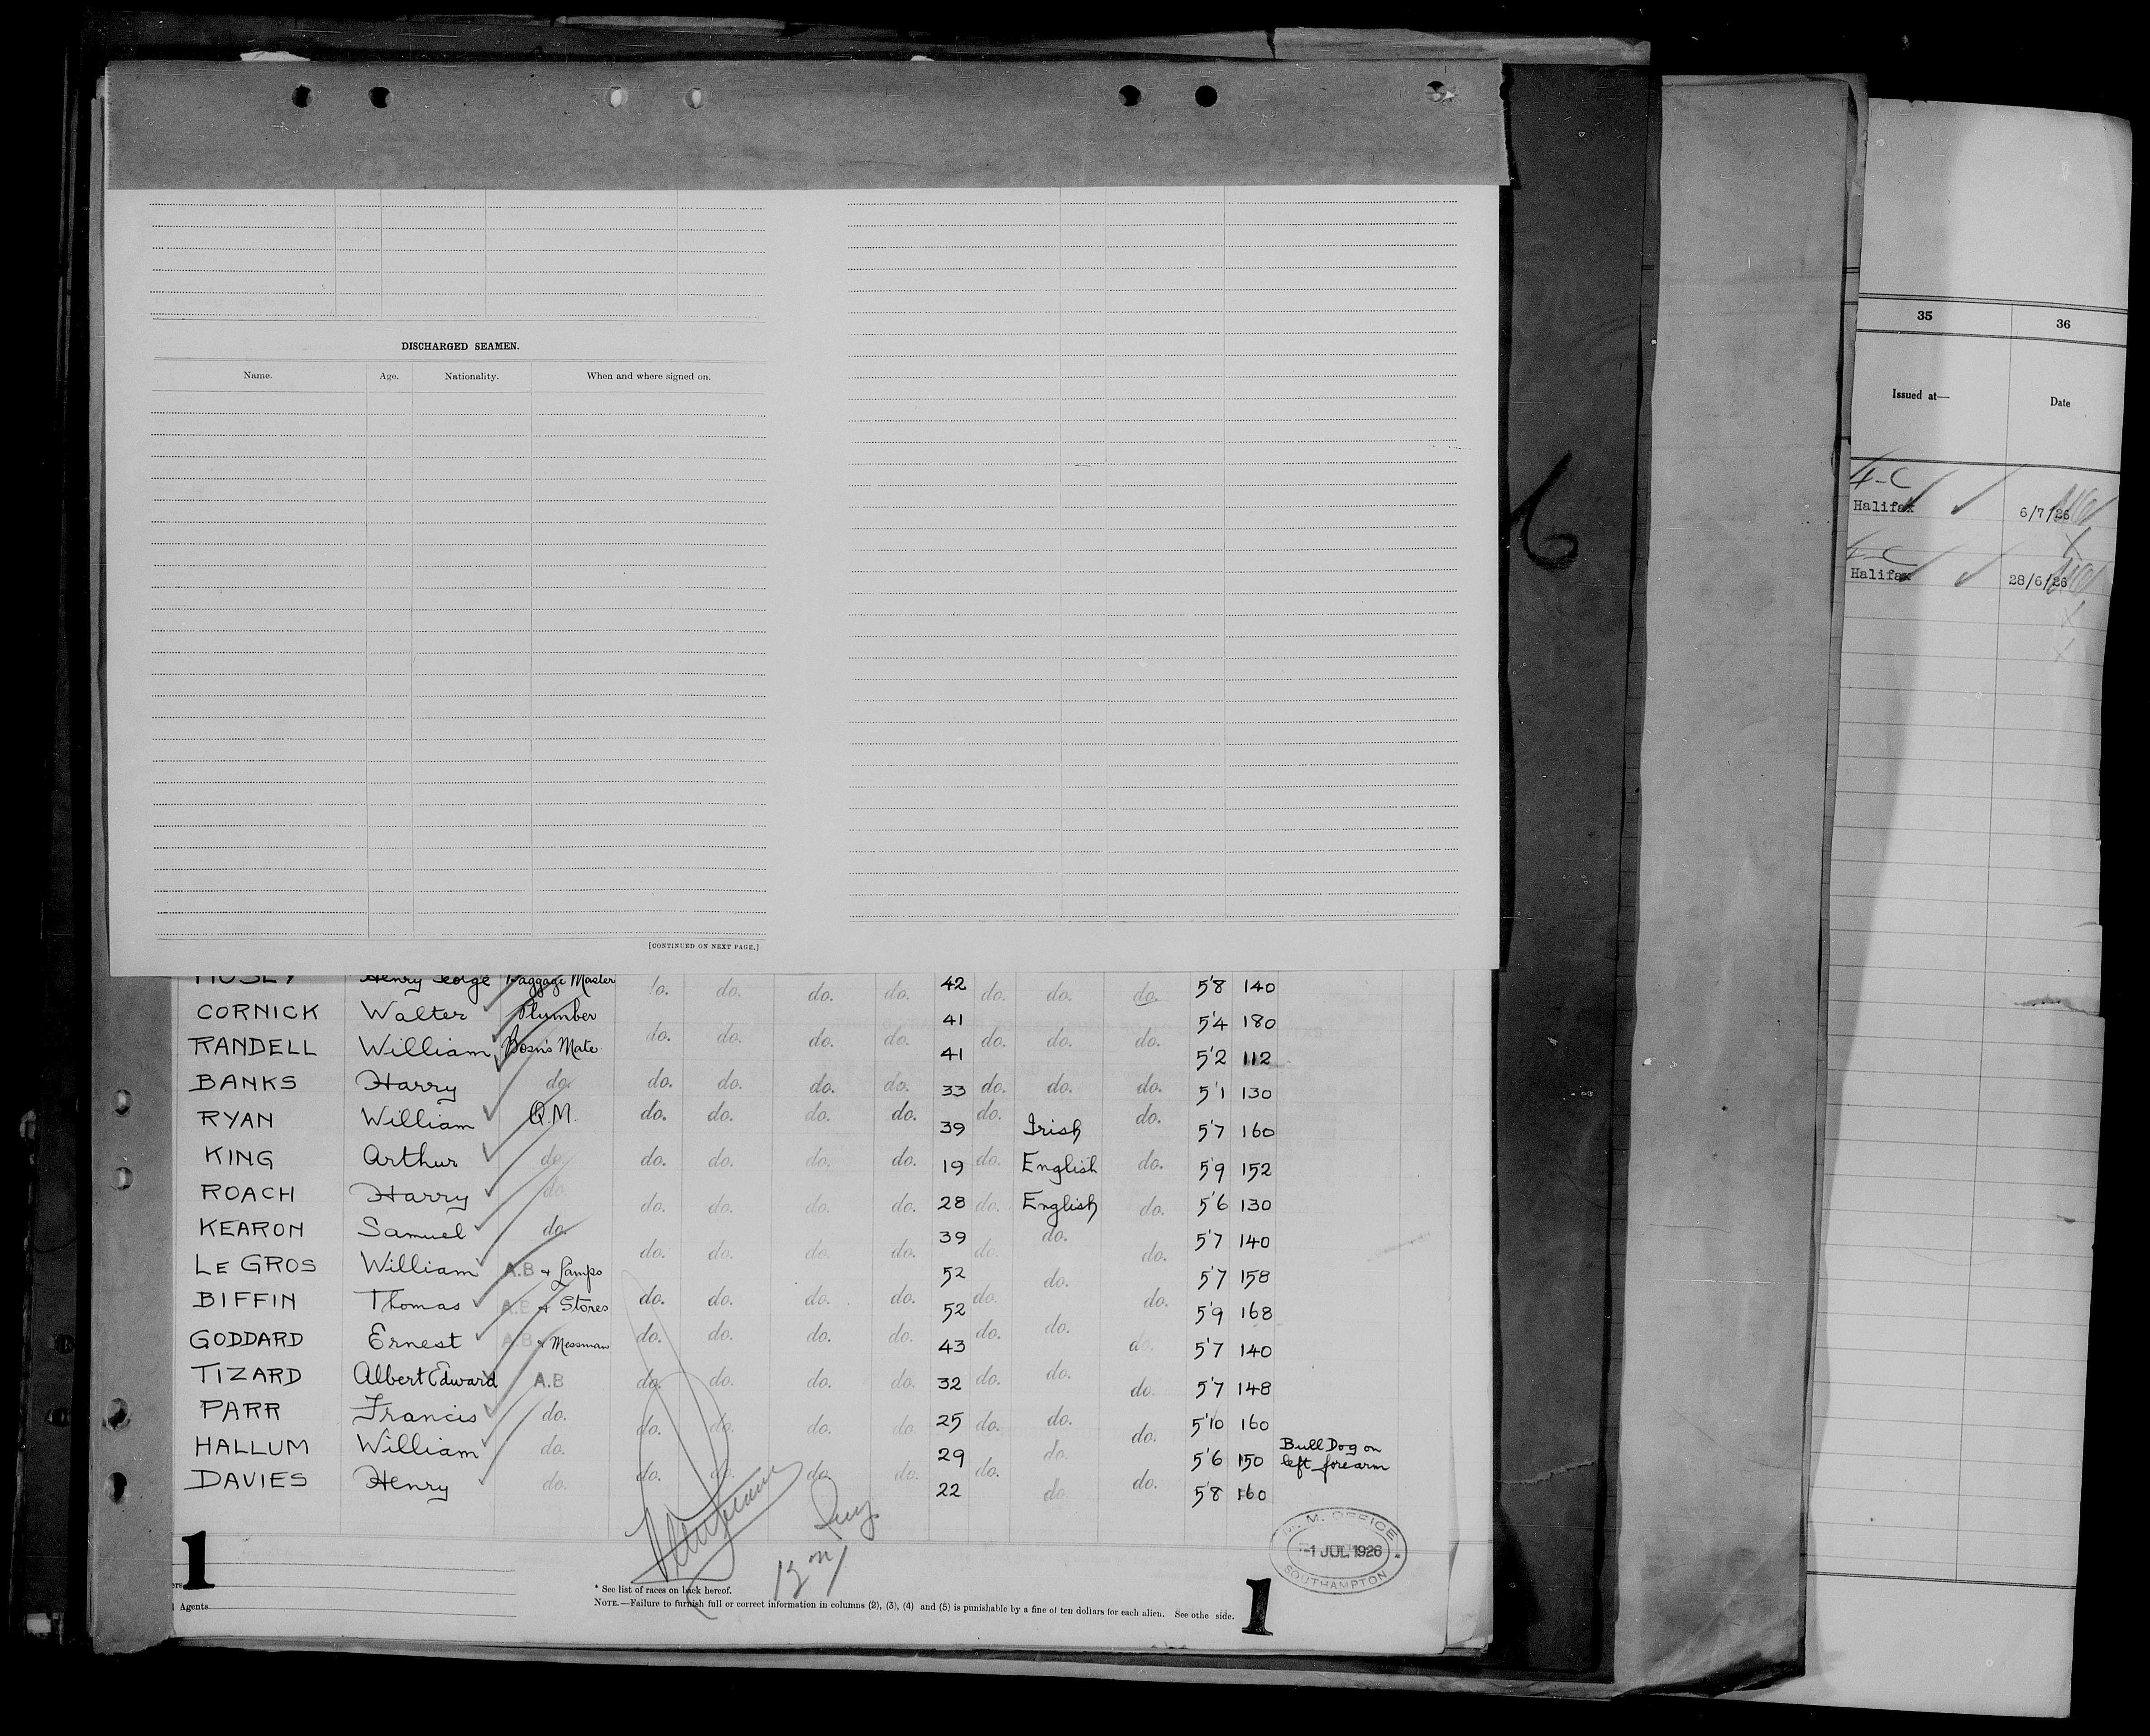 DISCHARGED SEAMEN.
Name. Age. Nationality. When and where signed on.
[CONTINUED ON NEXT PAGE.]
6
35 36
Issued at— Date
4-C
Halifax 6/7/26
4-C
Halifax 28/6/26
Henry George Baggage Master do. do. do. do. 42 do. do. do. 5'8 140
CORNICK Walter Plumber 41 5'4 180
RANDELL William Bosn's Mate do. do. do. do. 41 do. do. do. 5'2 112
BANKS Harry do. do. do. do. do. 33 do. do. do. 5'1 130
RYAN William Q.M. do. do. do. do. 39 do. Irish do. 5'7 160
KING Arthur do. do. do. do. do. 19 do. English do. 5'9 152
ROACH Harry do. do. do. do. do. 28 do. English do. 5'6 130
KEARON Samuel do. do. do. do. do. 39 do. do. do. 5'7 140
LE GROS William A.B & Lamps 52 do. 5'7 158
BIFFIN Thomas A.B & Stores do. do. do. do. 52 do. do. do. 5'9 168
GODDARD Ernest A.B & Messman do. do. do. do. 43 do. do. do. 5'7 140
TIZARD Albert Edward A.B do. do. do. do. 32 do. do. do. 5'7 148
PARR Francis do. do. do. do. do. 25 do. do. do. 5'10 160
HALLUM William do. 29 do. 5'6 150 Bull Dog on left forearm
DAVIES Henry do. do. do. do. do. 22 do. do. do. 5'8 160
M. M. OFFICE
-1 JUL 1926
SOUTHAMPTON
1
* See list of races on back hereof.
Agents
NOTE.—Failure to furnish full or correct information in columns (2), (3), (4) and (5) is punishable by a fine of ten dollars for each alien. See othe side.
1